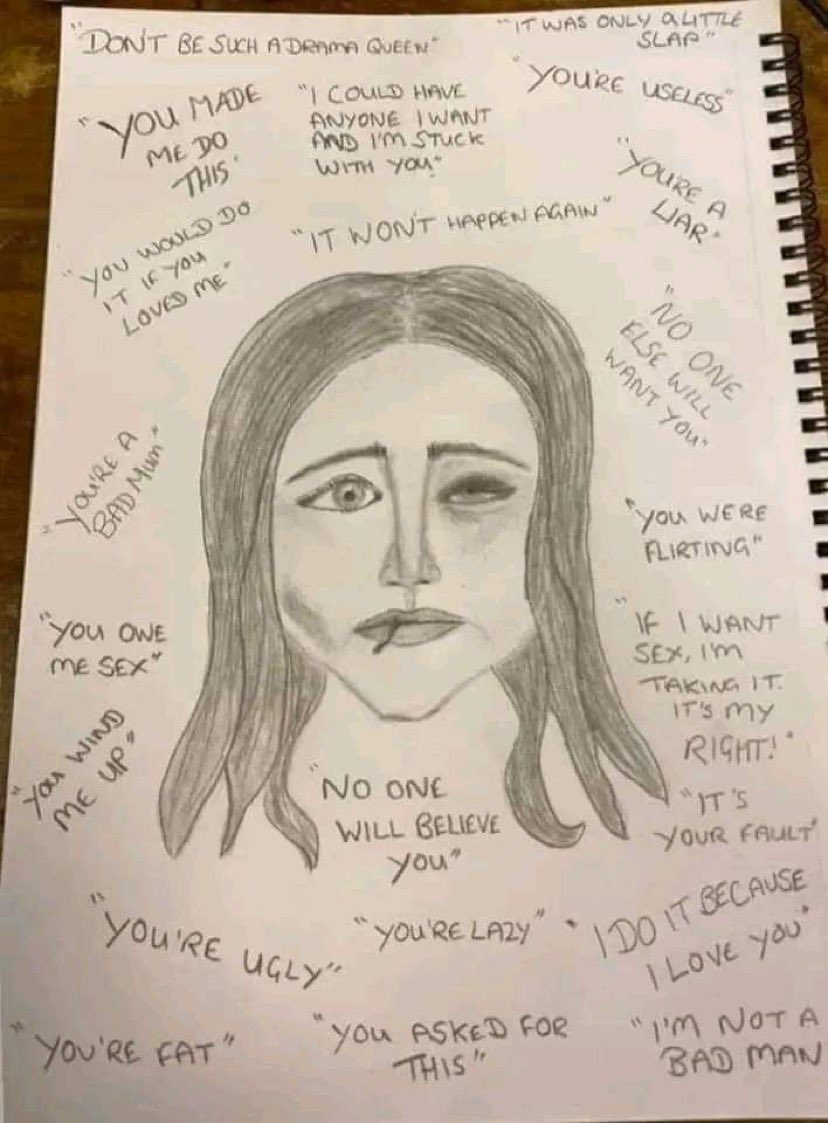 "DON'T BE SUCH A DRAMA QUEEN"
"IT WAS ONLY A LITTLE
SLAP"
"YOU MADE
ME DO
THIS"
"I COULD HAVE
ANYONE I WANT
AND I'M STUCK
WITH YOU"
"YOU'RE USELESS"
"YOU'RE A
LIAR"
"YOU WOULD DO
IT IF YOU
LOVED ME"
"IT WON'T HAPPEN AGAIN"
"NO ONE
ELSE WILL
WANT YOU"
"YOU'RE A
BAD MUM"
"YOU WERE
FLIRTING"
"YOU OWE
ME SEX"
"IF I WANT
SEX, I'M
TAKING IT.
IT'S MY
RIGHT!"
"YOU WIND
ME UP"
"NO ONE
WILL BELIEVE
YOU"
"IT'S
YOUR FAULT"
"YOU'RE UGLY"
"YOU'RE LAZY"
"I DO IT BECAUSE
I LOVE YOU"
"YOU'RE FAT"
"YOU ASKED FOR
THIS"
"I'M NOT A
BAD MAN